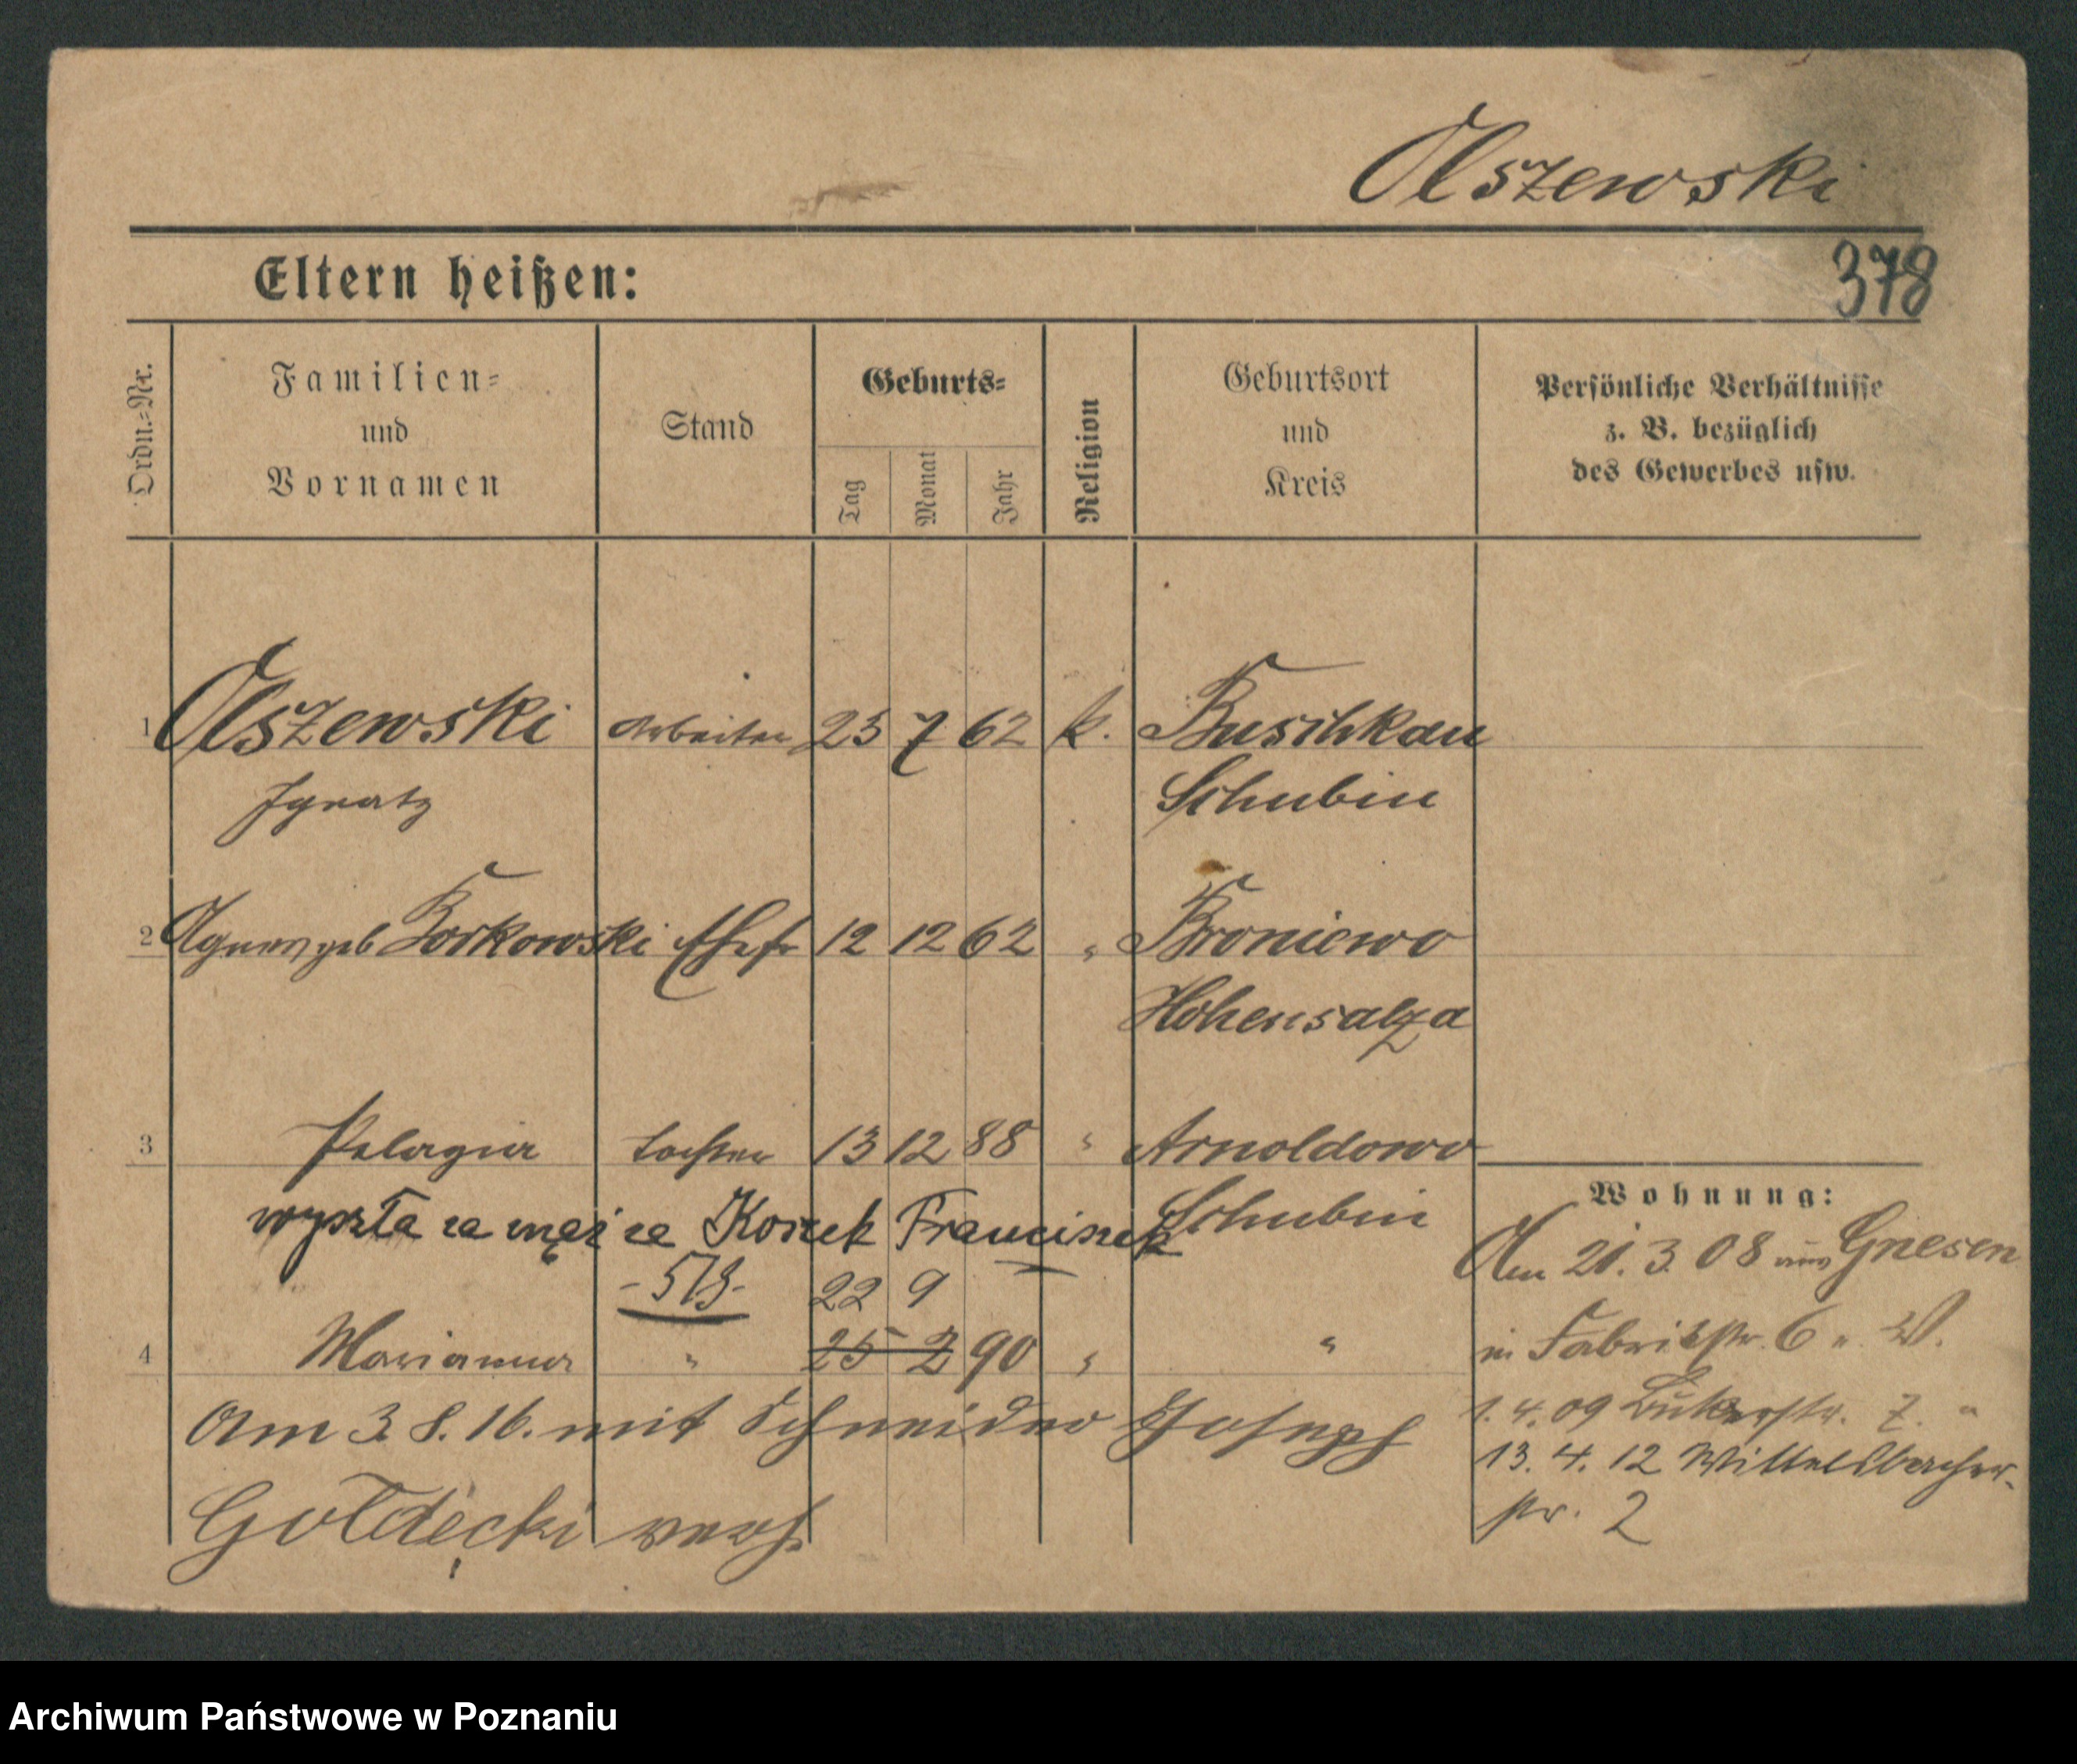 Olszewski
378
Eltern heißen:
Ordn.-Nr.
Familien- und Vornamen
Stand
Geburts-
Tag
Monat
Jahr
Religion
Geburtsort und Kreis
Persönliche Verhältnisse
z. B. bezüglich
des Gewerbes usw.
1 Olszewski Arbeiter 25 7 62 k. Buschkau
Ignatz Schubin
2 Agnes geb Borkowski Ehefr 12 12 62 " Broniewo
Hohensalza
3 Pelagia Tochter 13 12 88 " Arnoldowo
Schubin
wyszła za mąż za Koszek Franciszek
22 9
4 Marianna " 25 2 90 " "
Am 3. 8. 16. mit Schneider Joseph
Goldęcki verh.
Wohnung:
Am 21. 3. 08 aus Gnesen
in Fabrikstr. 6 u. W.
1. 4. 09 7. "
13. 4. 12 Wittelsbacher-
str. 2
Archiwum Państwowe w Poznaniu